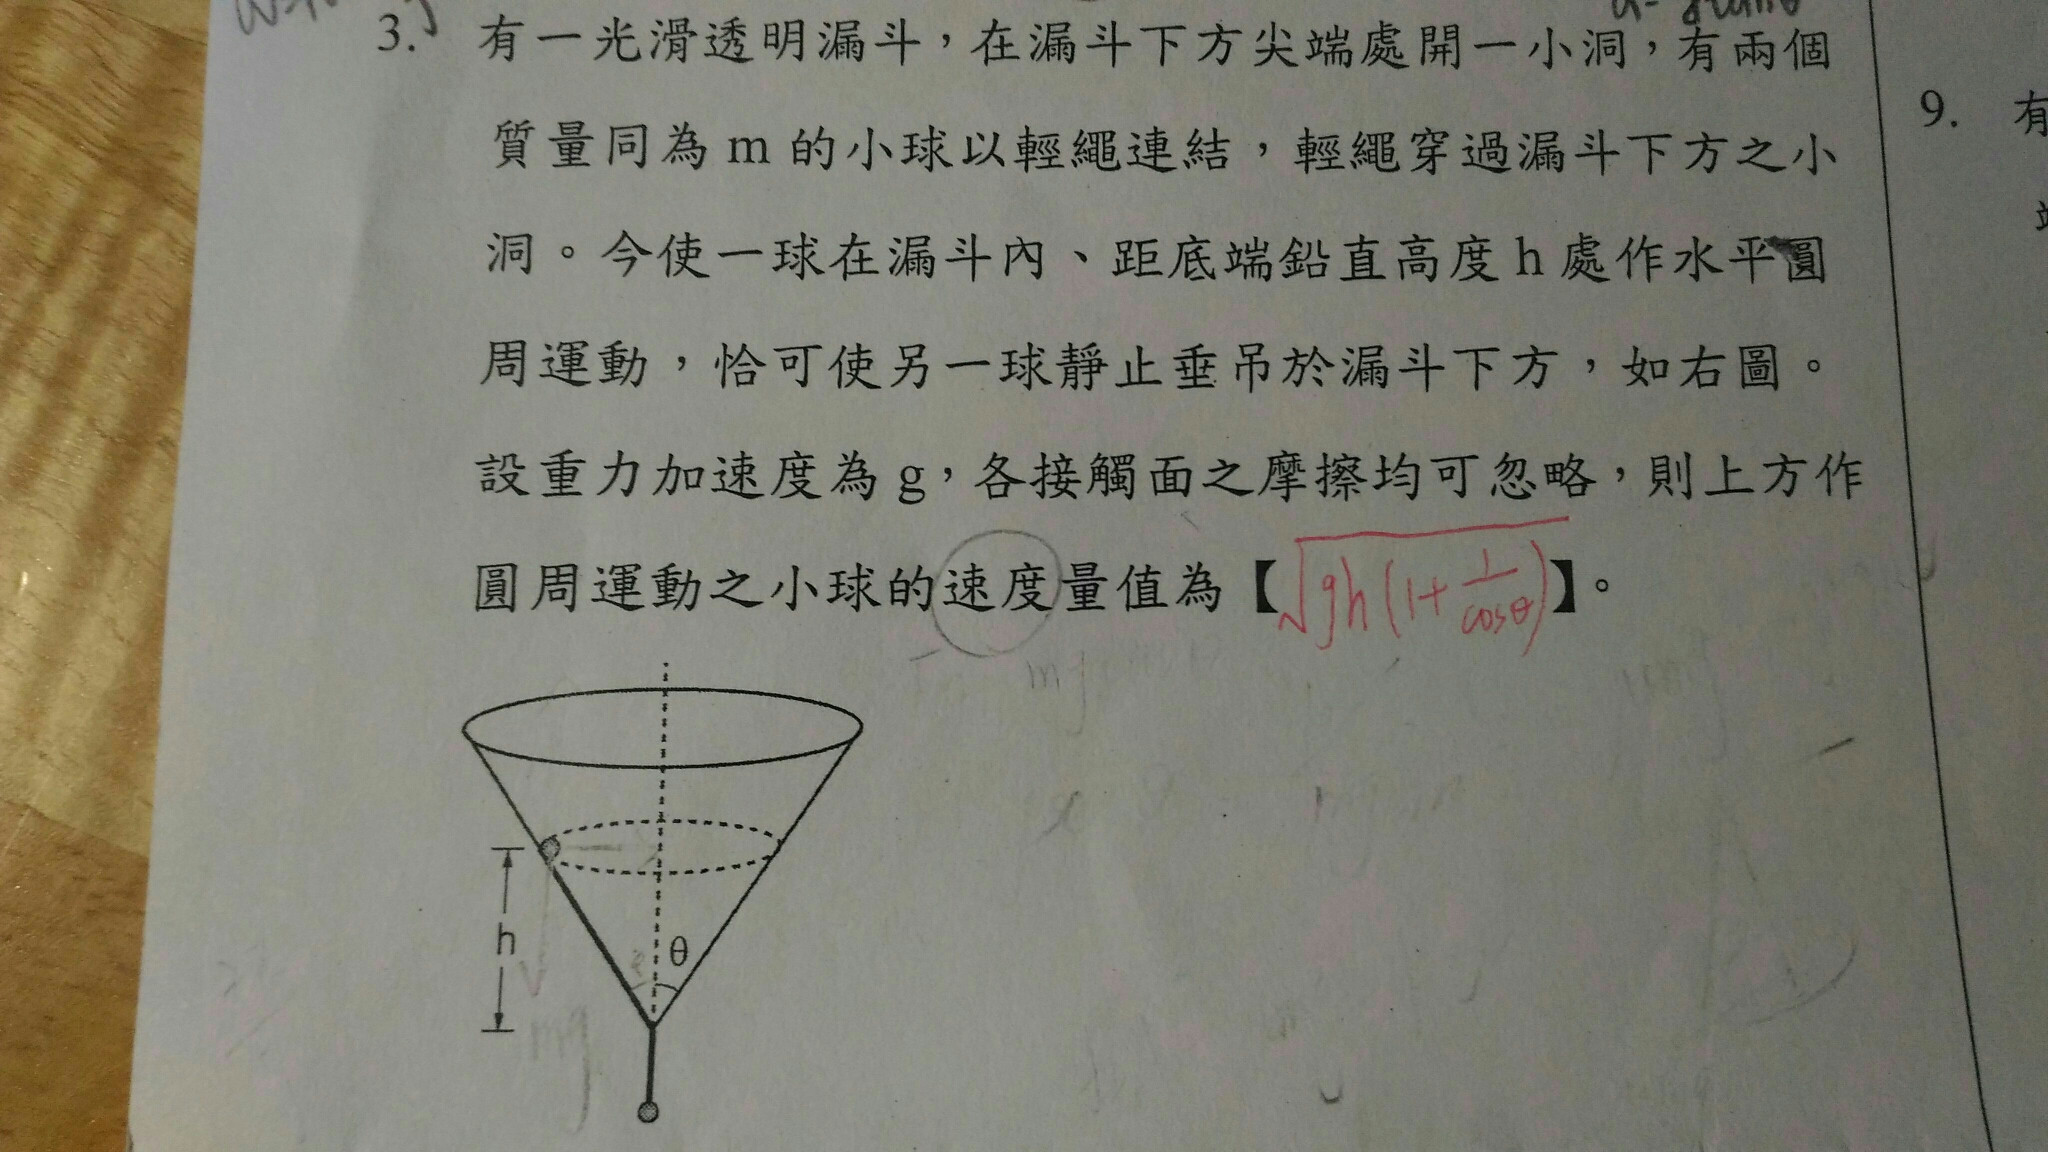 3. 有一光滑透明漏斗，在漏斗下方尖端處開一小洞，有兩個
質量同為 m 的小球以輕繩連結，輕繩穿過漏斗下方之小
洞。今使一球在漏斗內、距底端鉛直高度 h 處作水平圓
周運動，恰可使另一球靜止垂吊於漏斗下方，如右圖。
設重力加速度為 g，各接觸面之摩擦均可忽略，則上方作
圓周運動之小球的速度量值為【√gh(1+1/cosθ)】。
mg
θ
h
mg
9. 有